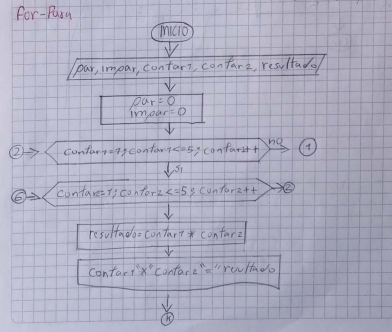 for-Para
INICIO
par, impar, contar1, contar2, resultado
par=0
impar=0
2 contar1=1; contar1<=5; contar1++ no 1
si
6 contar2=1; contar2<=5; contar2++ 2
resultado=contar1 * contar2
contar1"x"contar2"="resultado